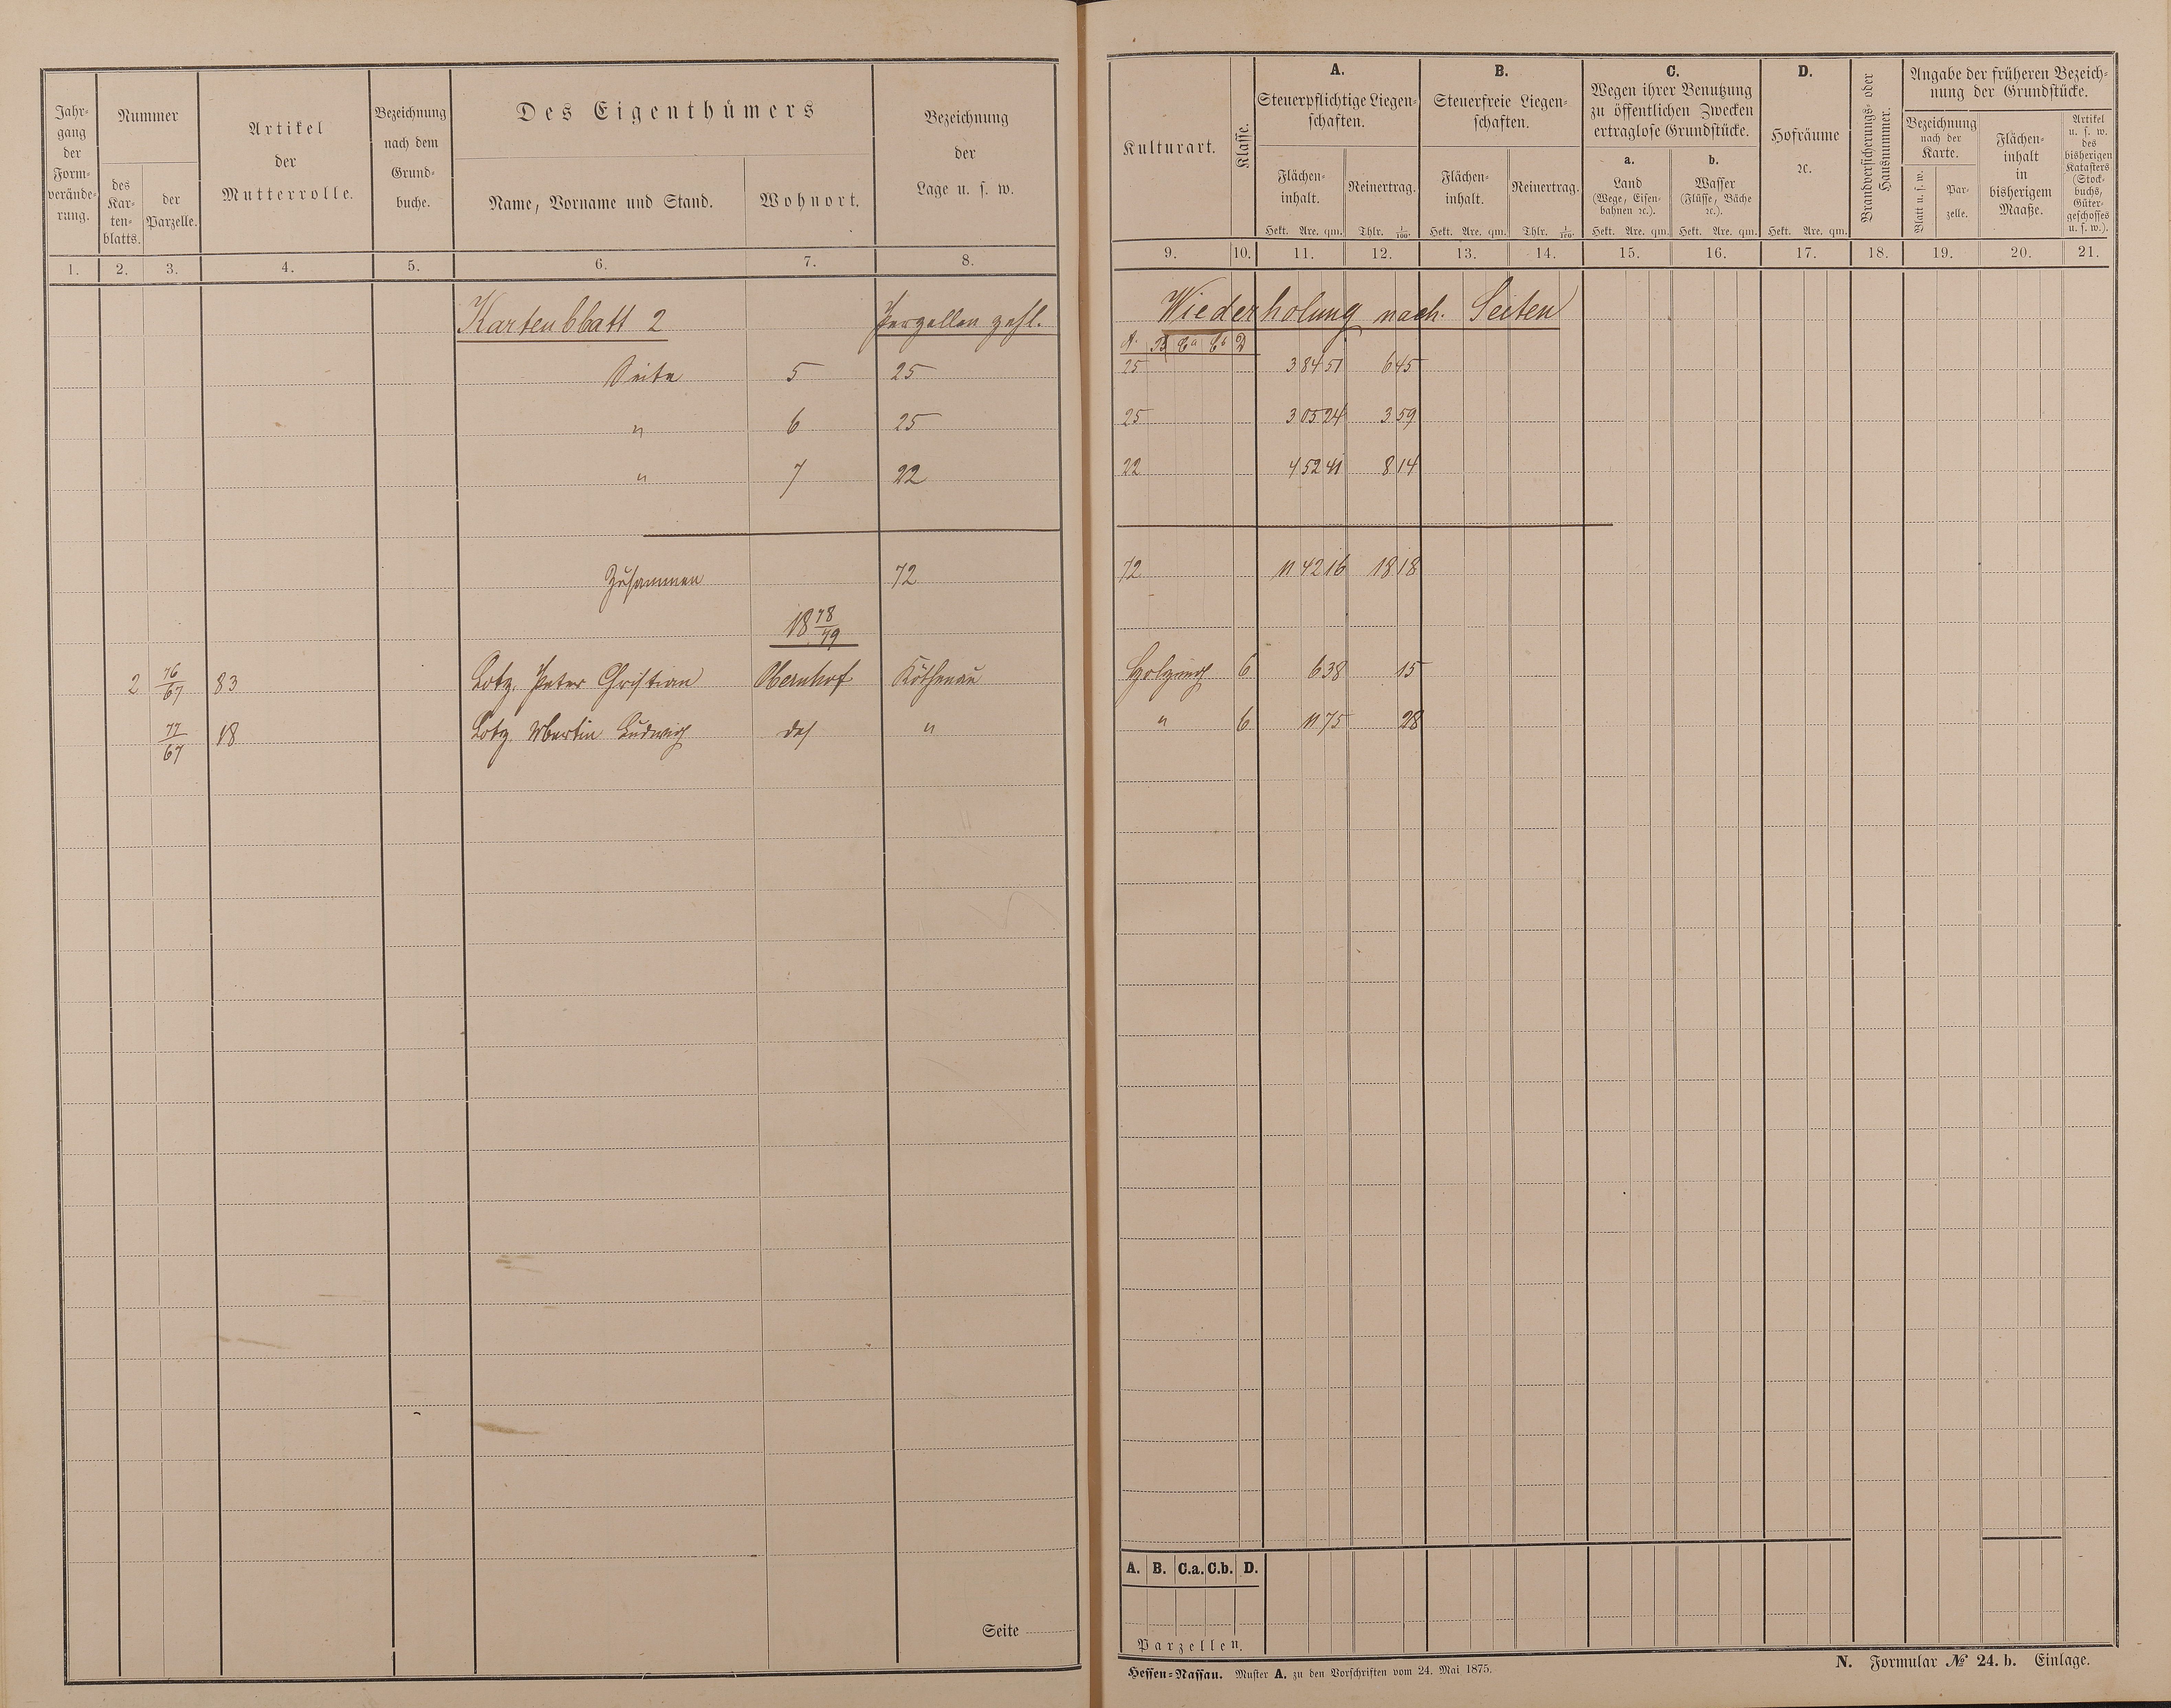 Jahr-
gang
der
Form-
verände-
rung.
Nummer
des
Kar-
ten-
blatts.
der
Parzelle.
Artikel
der
Mutterrolle.
Bezeichnung
nach dem
Grund-
buche.
Des Eigenthümers
Name, Vorname und Stand.
Wohnort.
Bezeichnung
der
Lage u. s. w.
1. 2. 3. 4. 5. 6. 7. 8.
Kartenblatt 2 Parzellen zahl.
Seite 5 25
" 6 25
" 7 22
Zusammen 72
18 78/79
2 76/67 83 Lotz, Peter Christian Obernhof Köthenau
77/67 18 Lotz, Martin Ludwig das "
Seite
Kulturart.
Klasse.
A.
Steuerpflichtige Liegen-
schaften.
Flächen-
inhalt.
Hekt. Are. qm.
Reinertrag.
Thlr. 1/100.
B.
Steuerfreie Liegen-
schaften.
Flächen-
inhalt.
Hekt. Are. qm.
Reinertrag.
Thlr. 1/100.
C.
Wegen ihrer Benutzung
zu öffentlichen Zwecken
ertraglose Grundstücke.
a.
Land
(Wege, Eisen-
bahnen ꝛc.).
Hekt. Are. qm.
b.
Wasser
(Flüsse, Bäche
ꝛc.).
Hekt. Are. qm.
D.
Hofräume
ꝛc.
Hekt. Are. qm.
Brandversicherungs- oder
Hausnummer.
Angabe der früheren Bezeich-
nung der Grundstücke.
Bezeichnung
nach der
Karte.
Blatt u. s. w.
Par-
zelle.
Flächen-
inhalt
in
bisherigem
Maaße.
Artikel
u. s. w.
des
bisherigen
Katasters
(Stock-
buchs,
Güter-
geschosses
u. s. w.).
9. 10. 11. 12. 13. 14. 15. 16. 17. 18. 19. 20. 21.
Wiederholung nach Seiten
A. B Ca Cb D
25 3 84 51 6 45
25 3 05 24 3 59
22 4 52 41 8 14
72 11 42 16 18 18
Holzung 6 6 38 15
" 6 11 75 28
A. B. C.a. C.b. D.
Parzellen.
Hessen-Nassau. Muster A. zu den Vorschriften vom 24. Mai 1875.
N. Formular № 24. b. Einlage.